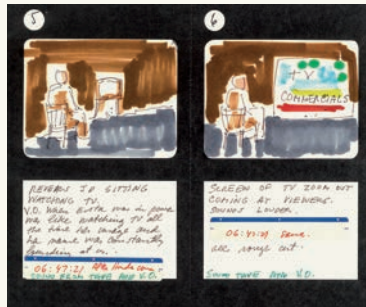 5
6
TV
COMMERCIALS
REVERSE J.D SITTING
WATCHING TV.
V.O. When Evita was in power
was like watching TV all
the time her image and
her name was constantly
at us.
06:47:21 After
SOUND FROM TAPE AND V.O.
SCREEN OF TV ZOOM OUT
COMING AT VIEWERS.
SOUNDS LOUDER.
06:47:21 Same.
all rough cut.
SOUND TAPE AND V.O.